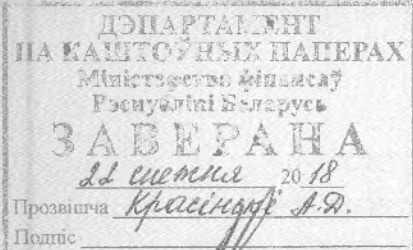 ДЭПАРТАМЕНТ
ПА КАШТОЎНЫХ ПАПЕРАХ
Міністэрства фінансаў
Рэспублікі Беларусь
ЗАВЕРАНА
22 снежня 2018
Прозвішча А.Д.
Подпіс